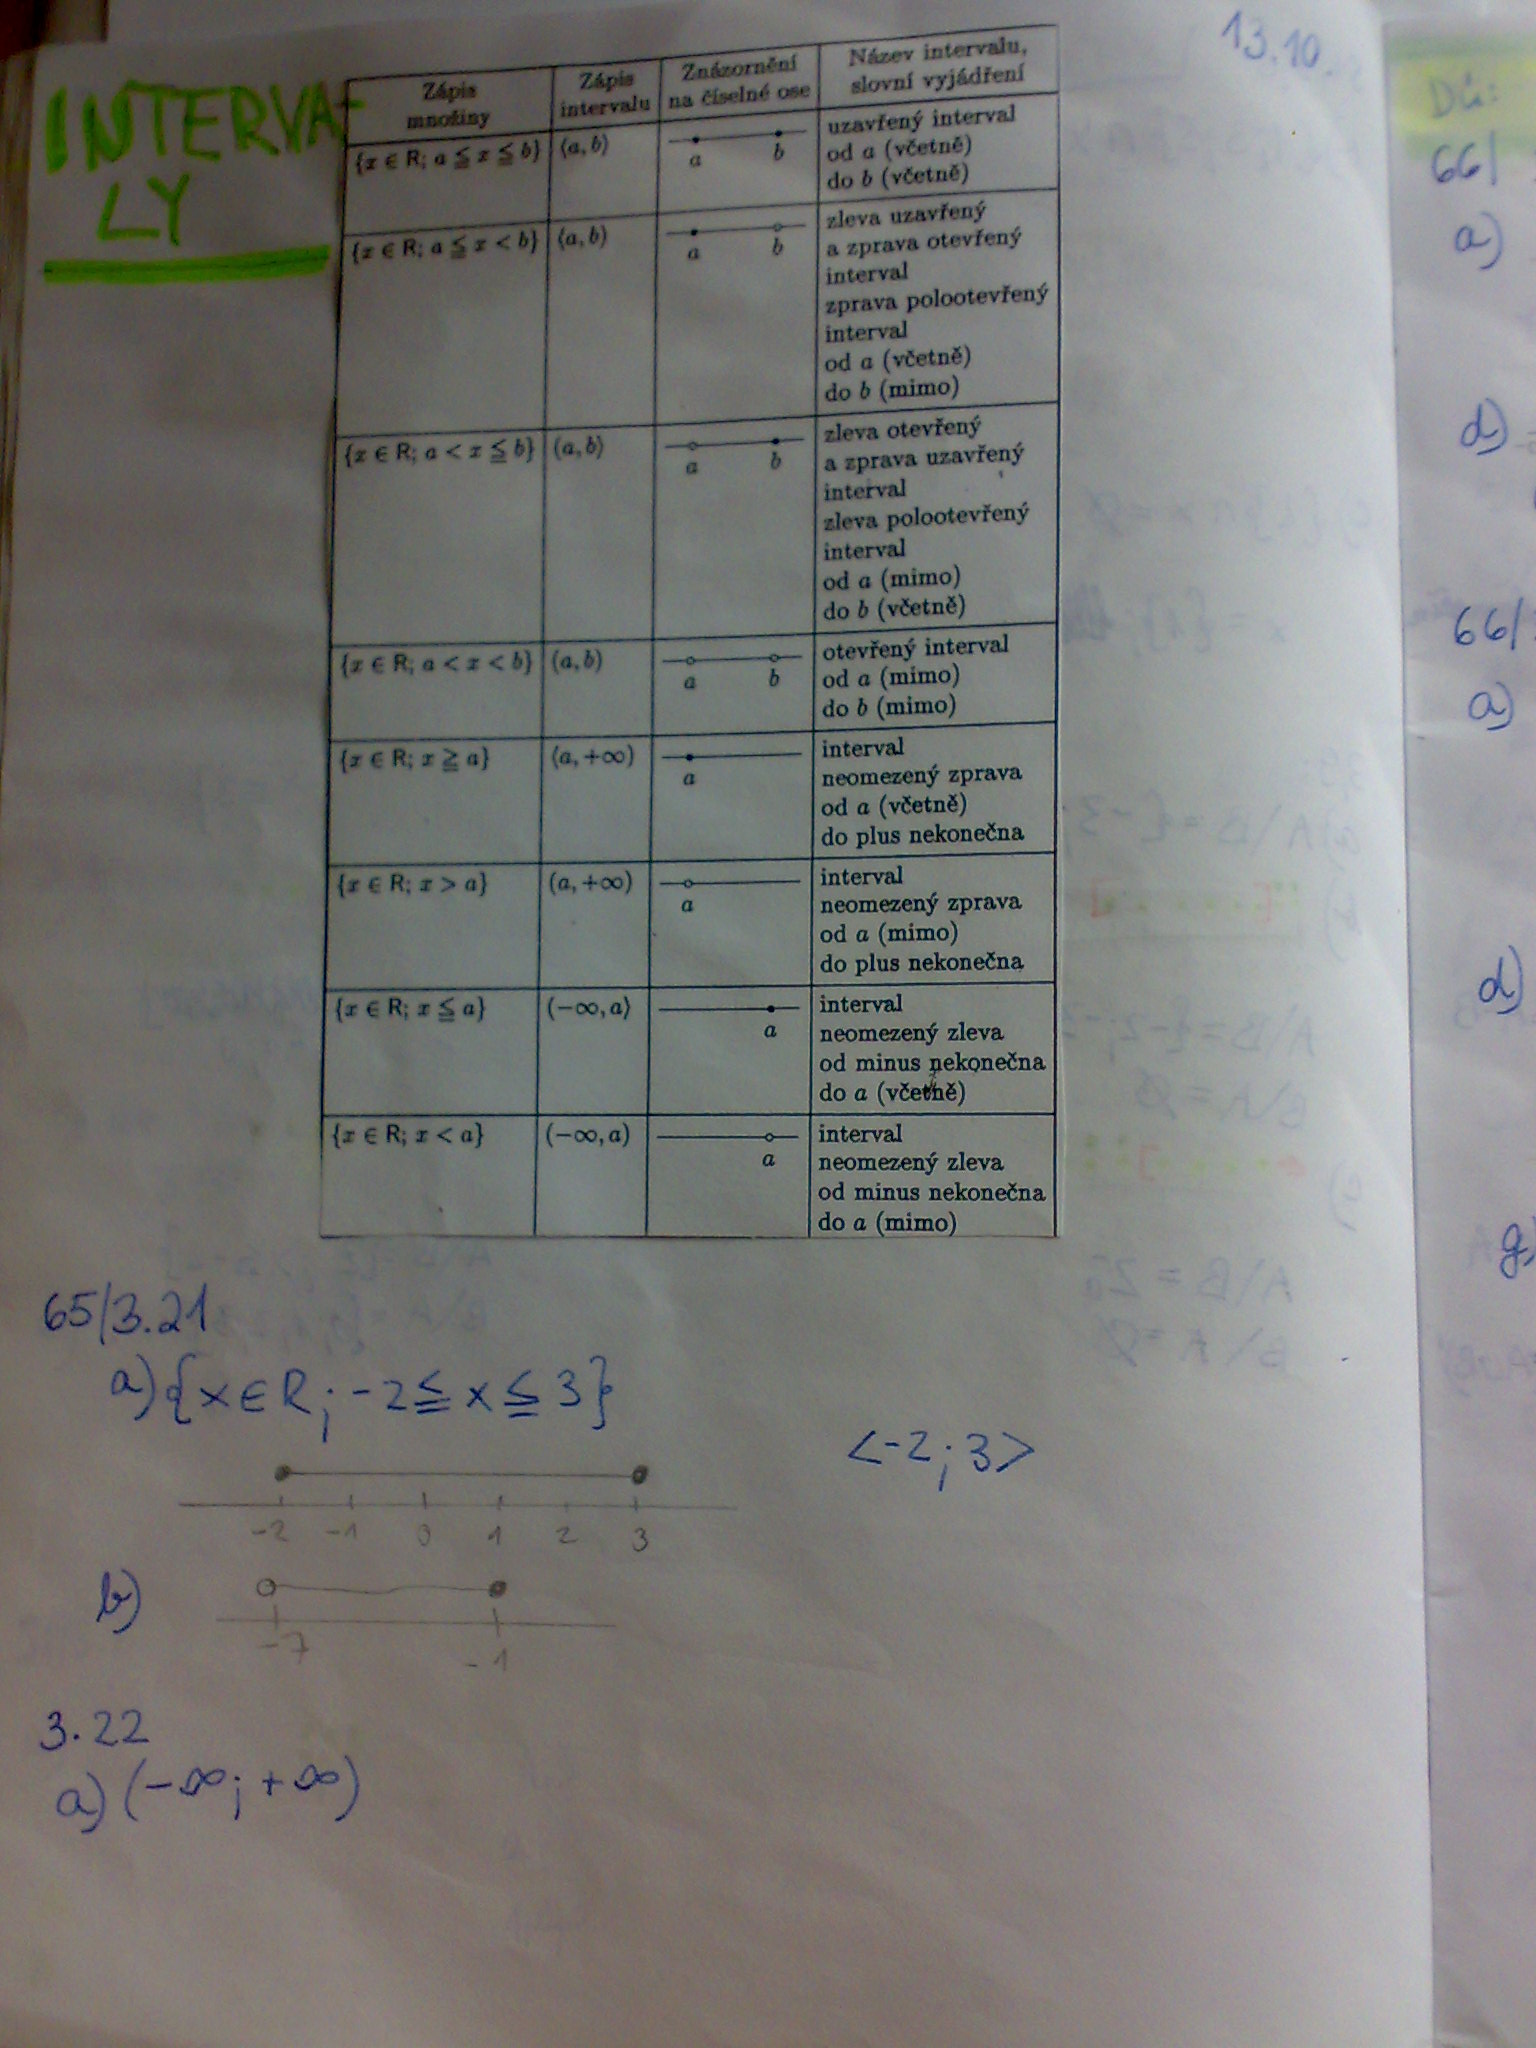 13.10.
INTERVA-
LY
Zápis
množiny
Zápis
intervalu
Znázornění
na číselné ose
Název intervalu,
slovní vyjádření
{x ∈ R; a ≦ x ≦ b}
⟨a, b⟩
a b
uzavřený interval
od a (včetně)
do b (včetně)
{x ∈ R; a ≦ x < b}
⟨a, b)
a b
zleva uzavřený
a zprava otevřený
interval
zprava polootevřený
interval
od a (včetně)
do b (mimo)
{x ∈ R; a < x ≦ b}
(a, b⟩
a b
zleva otevřený
a zprava uzavřený
interval
zleva polootevřený
interval
od a (mimo)
do b (včetně)
{x ∈ R; a < x < b}
(a, b)
a b
otevřený interval
od a (mimo)
do b (mimo)
{x ∈ R; x ≧ a}
⟨a, +∞)
a
interval
neomezený zprava
od a (včetně)
do plus nekonečna
{x ∈ R; x > a}
(a, +∞)
a
interval
neomezený zprava
od a (mimo)
do plus nekonečna
{x ∈ R; x ≦ a}
(−∞, a⟩
a
interval
neomezený zleva
od minus nekonečna
do a (včetně)
{x ∈ R; x < a}
(−∞, a)
a
interval
neomezený zleva
od minus nekonečna
do a (mimo)
65/3.21
a) {x ∈ R; -2 ≦ x ≦ 3}
<-2; 3>
-2 -1 0 1 2 3
b)
-7 -1
3.22
a) (-∞; +∞)
Dú:
66/
a)
d)
66/
a)
d)
g)